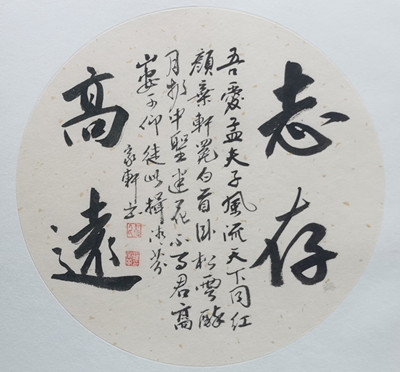 志存
吾愛孟夫子風流天下聞紅
顏棄軒冕白首臥松雲醉
月頻中聖迷花不事君高
山安可仰徒此揖清芬
家軒書
高遠